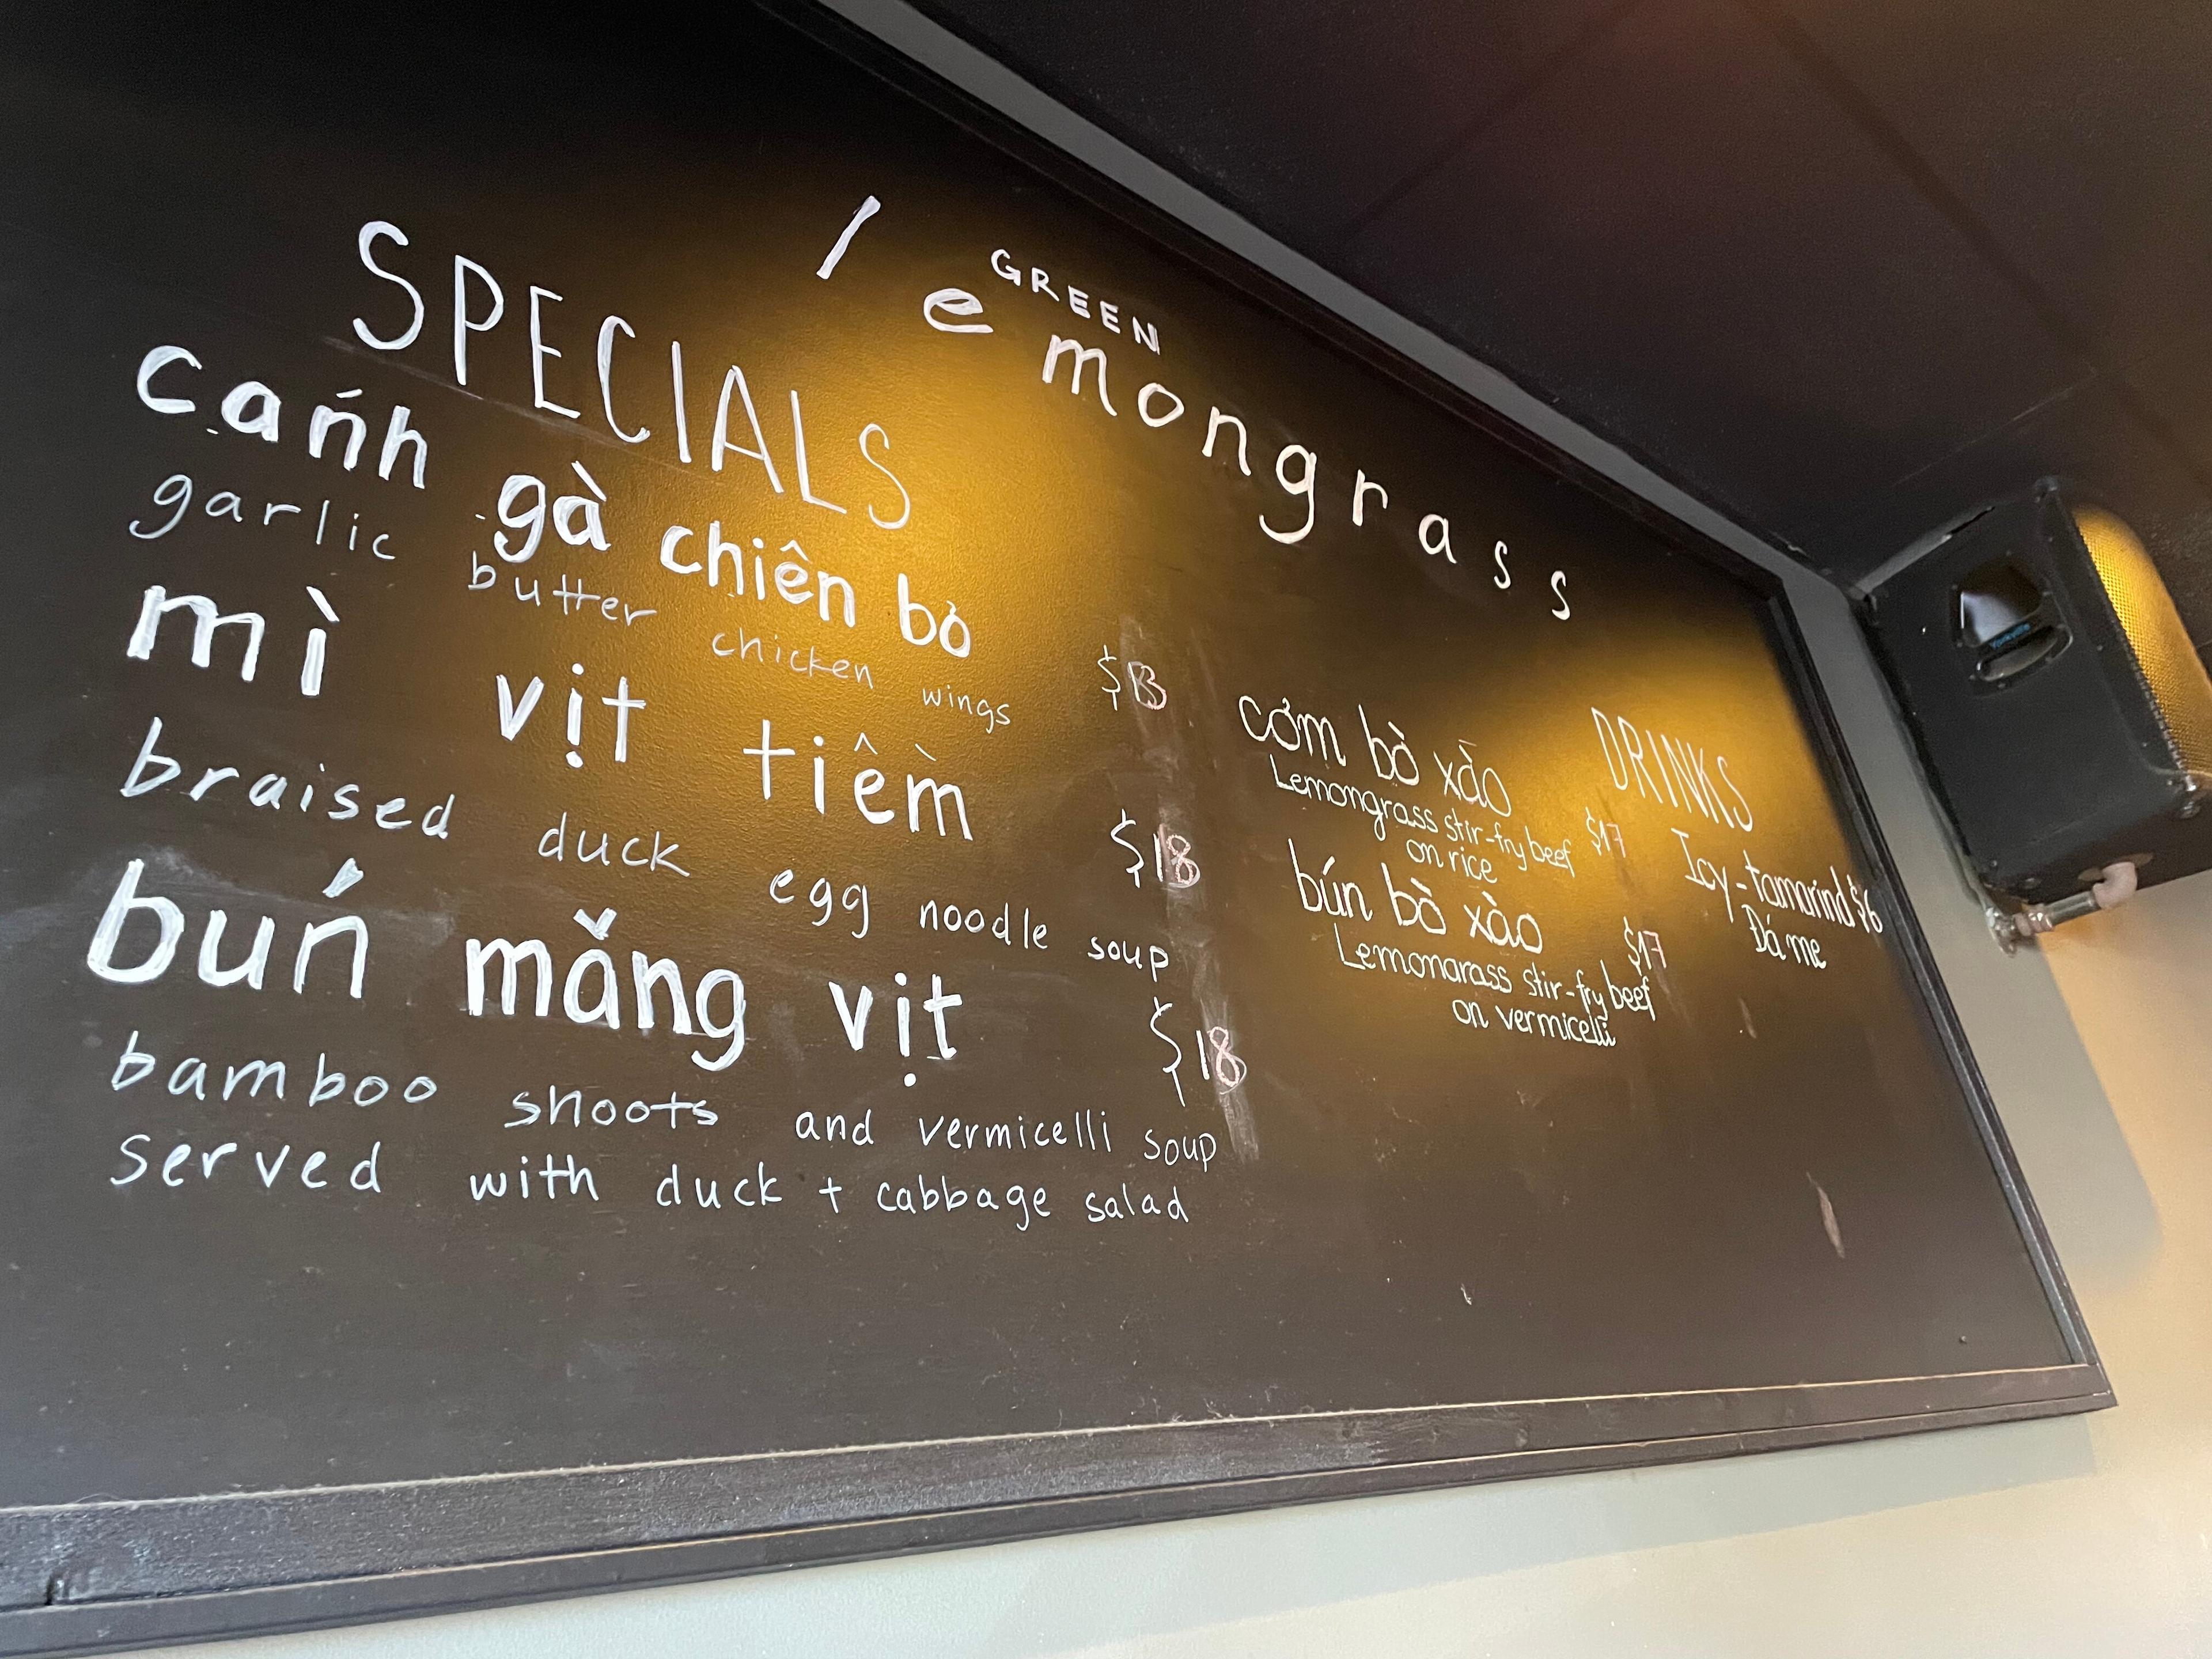 GREEN
lemongrass
SPECIALS
cańh gà chiên bỏ
garlic butter chicken wings $13
mì vịt tiềm
braised duck egg noodle soup $18
buń măng vịt
bamboo shoots and vermicelli soup $18
served with duck + cabbage salad
cơm bò xào
Lemongrass stir-fry beef $17
on rice
bún bò xào
Lemongrass stir-fry beef $17
on vermicelli
DRINKS
Icy-tamarind $6
Đá me
Yorkville